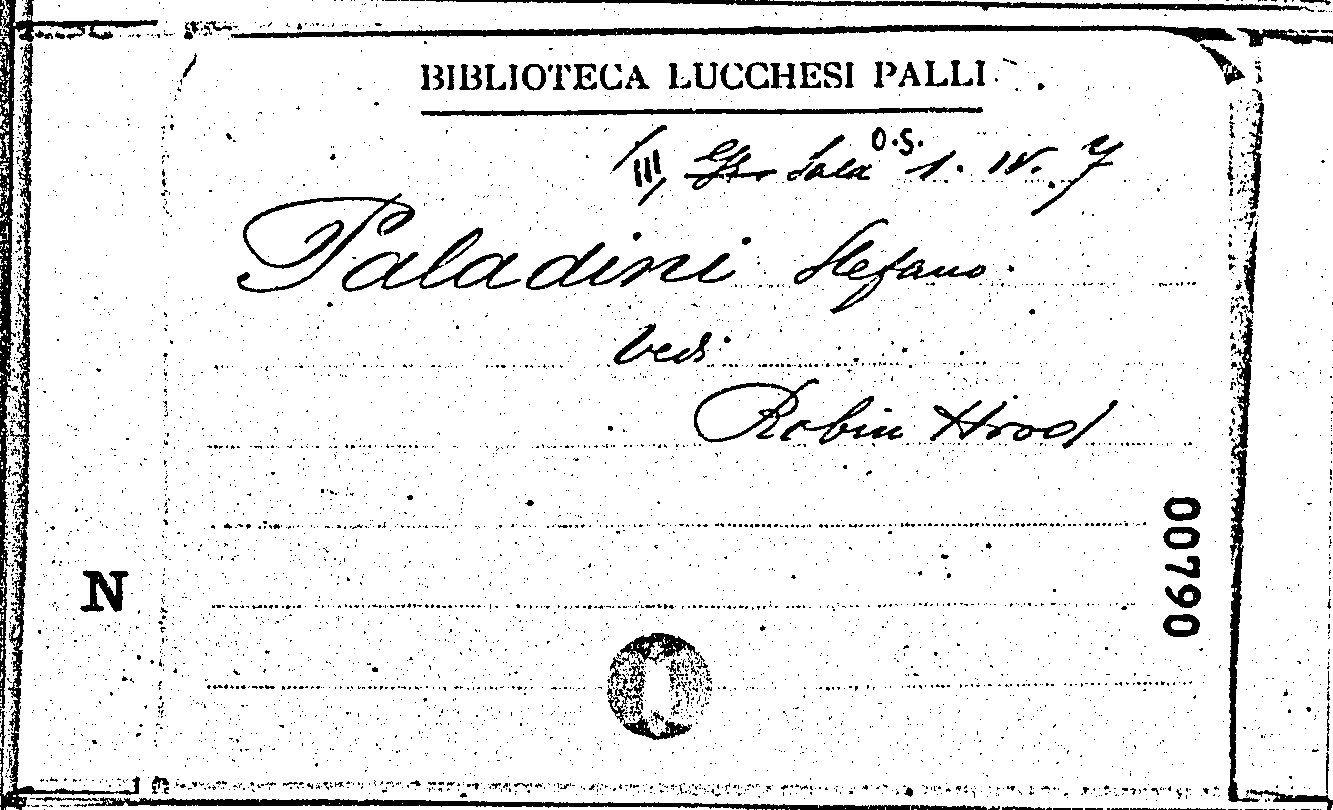 BIBLIOTECA LUCCHESI PALLI
O.S.
III, Sala 1. IV. 7
Paladini Stefano
vedi
Robin Hood
00790
N